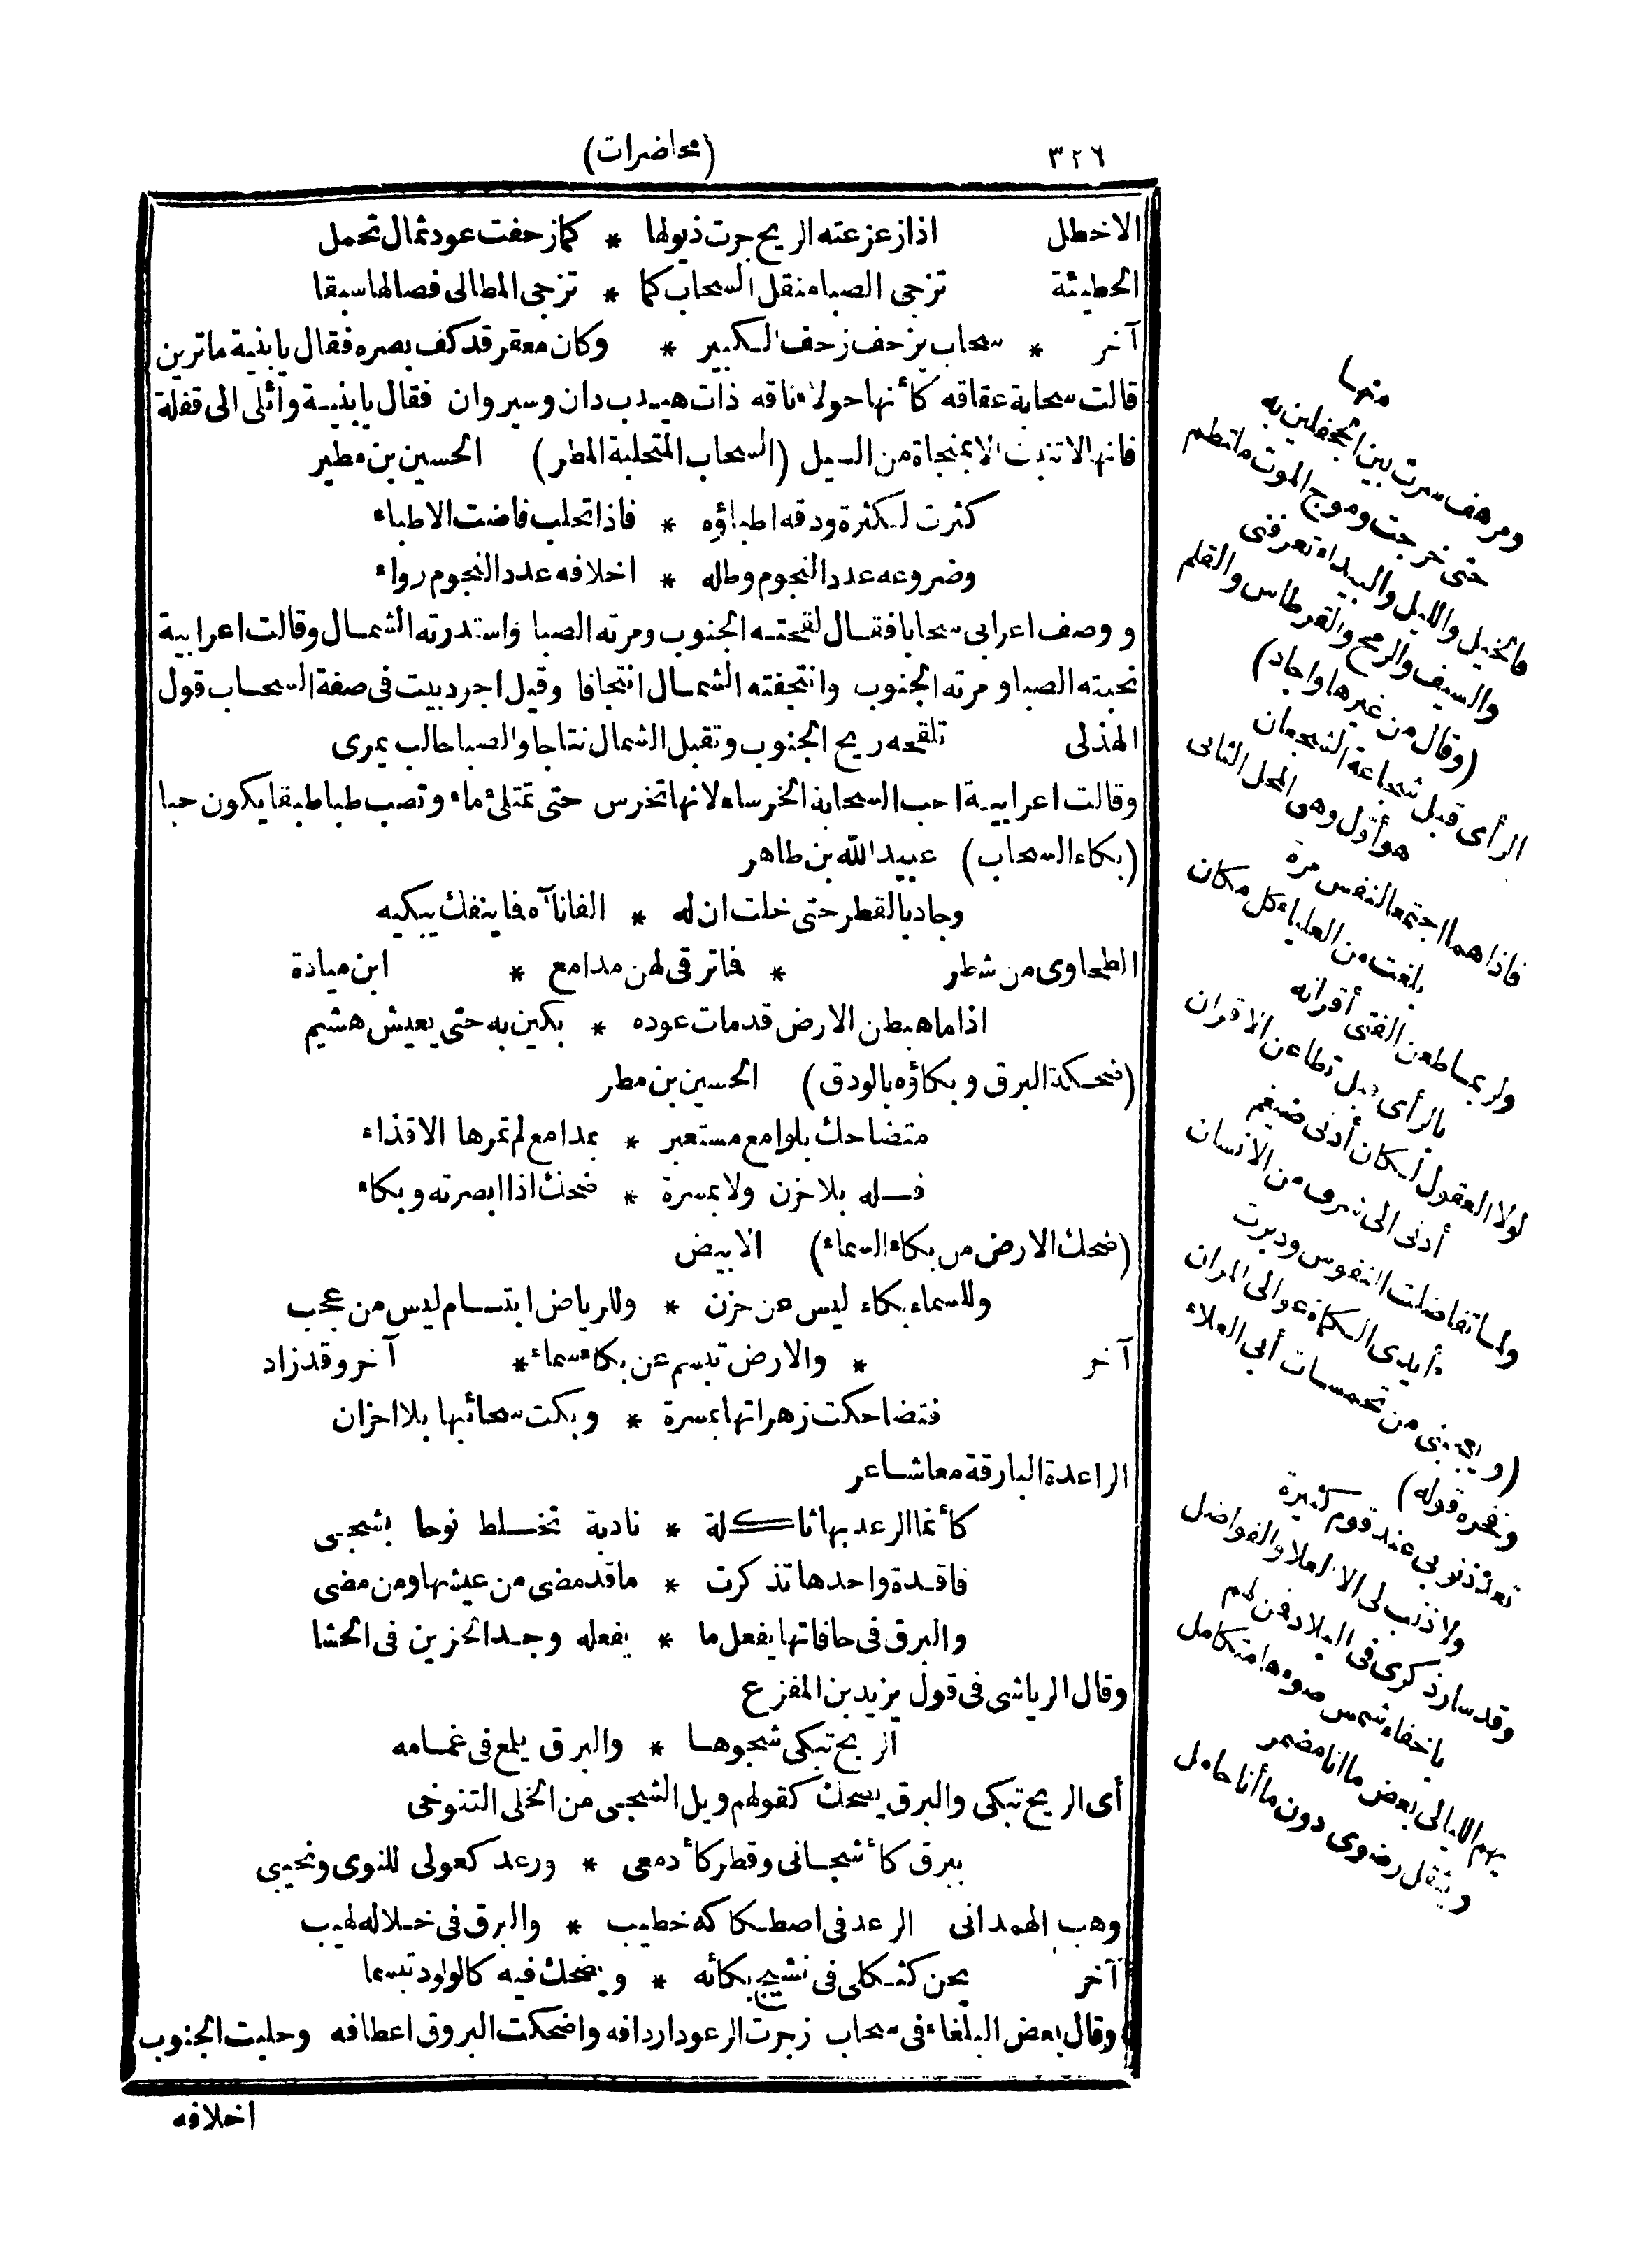 ٣٢٦
(محاضرات)
الاخطل اذا زعزعته الريح جرت ذيولها * كما زحفت عوذ ثمال تحمل
الحطيئة تزجى الصبا منقل السحاب كما * تزجى المطالى فصالها سبقا
آخر * سحاب يزحف زحف الكبير * وكان معقر قد كف بصره فقال يا بنية ما ترين
قالت سحابة عقاقه كأنها حولاء ناقه ذات هيدب دان وسير وان فقال يا بنية وائلى الى قفلة
فانها لا تنبت الا بمنجاة من السيل (السحاب المتحلبة المطر) الحسين بن مطير
كثرت لكثرة ودقه اطباؤه * فاذا تحلب فاضت الاطباء
وضروعه عدد النجوم وطله * اخلافه عدد النجوم رواء
ووصف اعرابى سحابا فقال لقحته الجنوب ومرته الصبا واستدرته الشمال وقالت اعرابية
نحبته الصبا ومرته الجنوب وانتجفته الشمال انتجافا وقيل اجرد بيت فى صفة السحاب قول
الهذلى تلقحه ريح الجنوب وتقبل الشمال نتاجا والصبا حالب يمرى
وقالت اعرابية احب السحابة الخرساء لانها تخرس حتى تمتلئ ماء وتصب طبا طبقا يكون حبا
(بكاء السحاب) عبيد الله بن طاهر
وجاد بالقطر حتى خلت ان له * الفا ناآه فما ينفك يبكيه
الطحاوى من شطر * فما ترقى لهن مدامع * ابن ميادة
اذا ما هبطن الارض قد مات عوده * بكين به حتى يعيش هشيم
(ضحكة البرق وبكاؤه بالودق) الحسين بن مطر
متضاحك بلوامع مستعبر * بمدامع لم تمرها الاقذاء
فله بلا خزن ولا بمسرة * ضحك اذا ابصرته وبكاء
(ضحك الارض من بكاء السماء) الابيض
وللسماء بكاء ليس عن حزن * وللرياض ابتسام ليس من عجب
آخر * والارض تبسم عن بكاء سماء * آخر وقد زاد
فتضاحكت زهراتها بمسرة * وبكت سحائبها بلا احزان
الراعدة البارقة معا شاعر
كأنما الرعد بها ثاكلة * نادبة تخلط نوحا بشجى
فاقدة واحدها تذكرت * ما قد مضى من عيشها ومن مضى
والبرق فى حافاتها يفعل ما * يفعله وجد الحزين فى الحشا
وقال الرياشى فى قول يزيد بن المفزع
الريح تبكى شجوها * والبرق يلمع فى غمامه
أى الريح تبكى والبرق يضحك كقولهم ويل الشجى من الخلى التنوخى
ببرق كأشجانى وقطر كأدمعى * ورعد كعولى للنوى ونحيبى
وهب الهمدانى الرعد فى اصطكاكه خطيب * والبرق فى خلاله لهيب
آخر يحن كثكلى فى نشيج بكائه * ويضحك فيه كالولود تبسما
وقال بعض البلغاء فى سحاب زجرت الرعود اردافه واضحكت البروق اعطافه وحلبت الجنوب
اخلافه
منها
ومرهف سرت بين الجحفلين به
حتى خرجت وموج الموت ملتطم
فالخيل والليل والبيداء تعرفنى
والسيف والرمح والقرطاس والقلم
(وقال من غيرها واجاد)
الرأى قبل شجاعة الشجعان
هو أول وهى المحل الثانى
فاذا هما اجتمعا لنفس مرة
بلغت من العلياء كل مكان
ولربما طعن الفتى أقرانه
بالرأى قبل تطاعن الاقران
لولا العقول لكان أدنى ضيغم
أدنى الى شرف من الانسان
ولما تفاضلت النفوس ودبرت
أيدى الكماة عوالى المران
(ويعجبنى من تحمسات أبى العلاء
وفخره قوله)
تعد ذنوبى عند قوم كثيرة
ولا ذنب لى الا العلا والفواضل
وقد سار ذكرى فى البلاد فمن لهم
باخفاء شمس ضوءها متكامل
يهم الليالى بعض ما انا مضمر
ويثقل رضوى دون ما أنا حامل